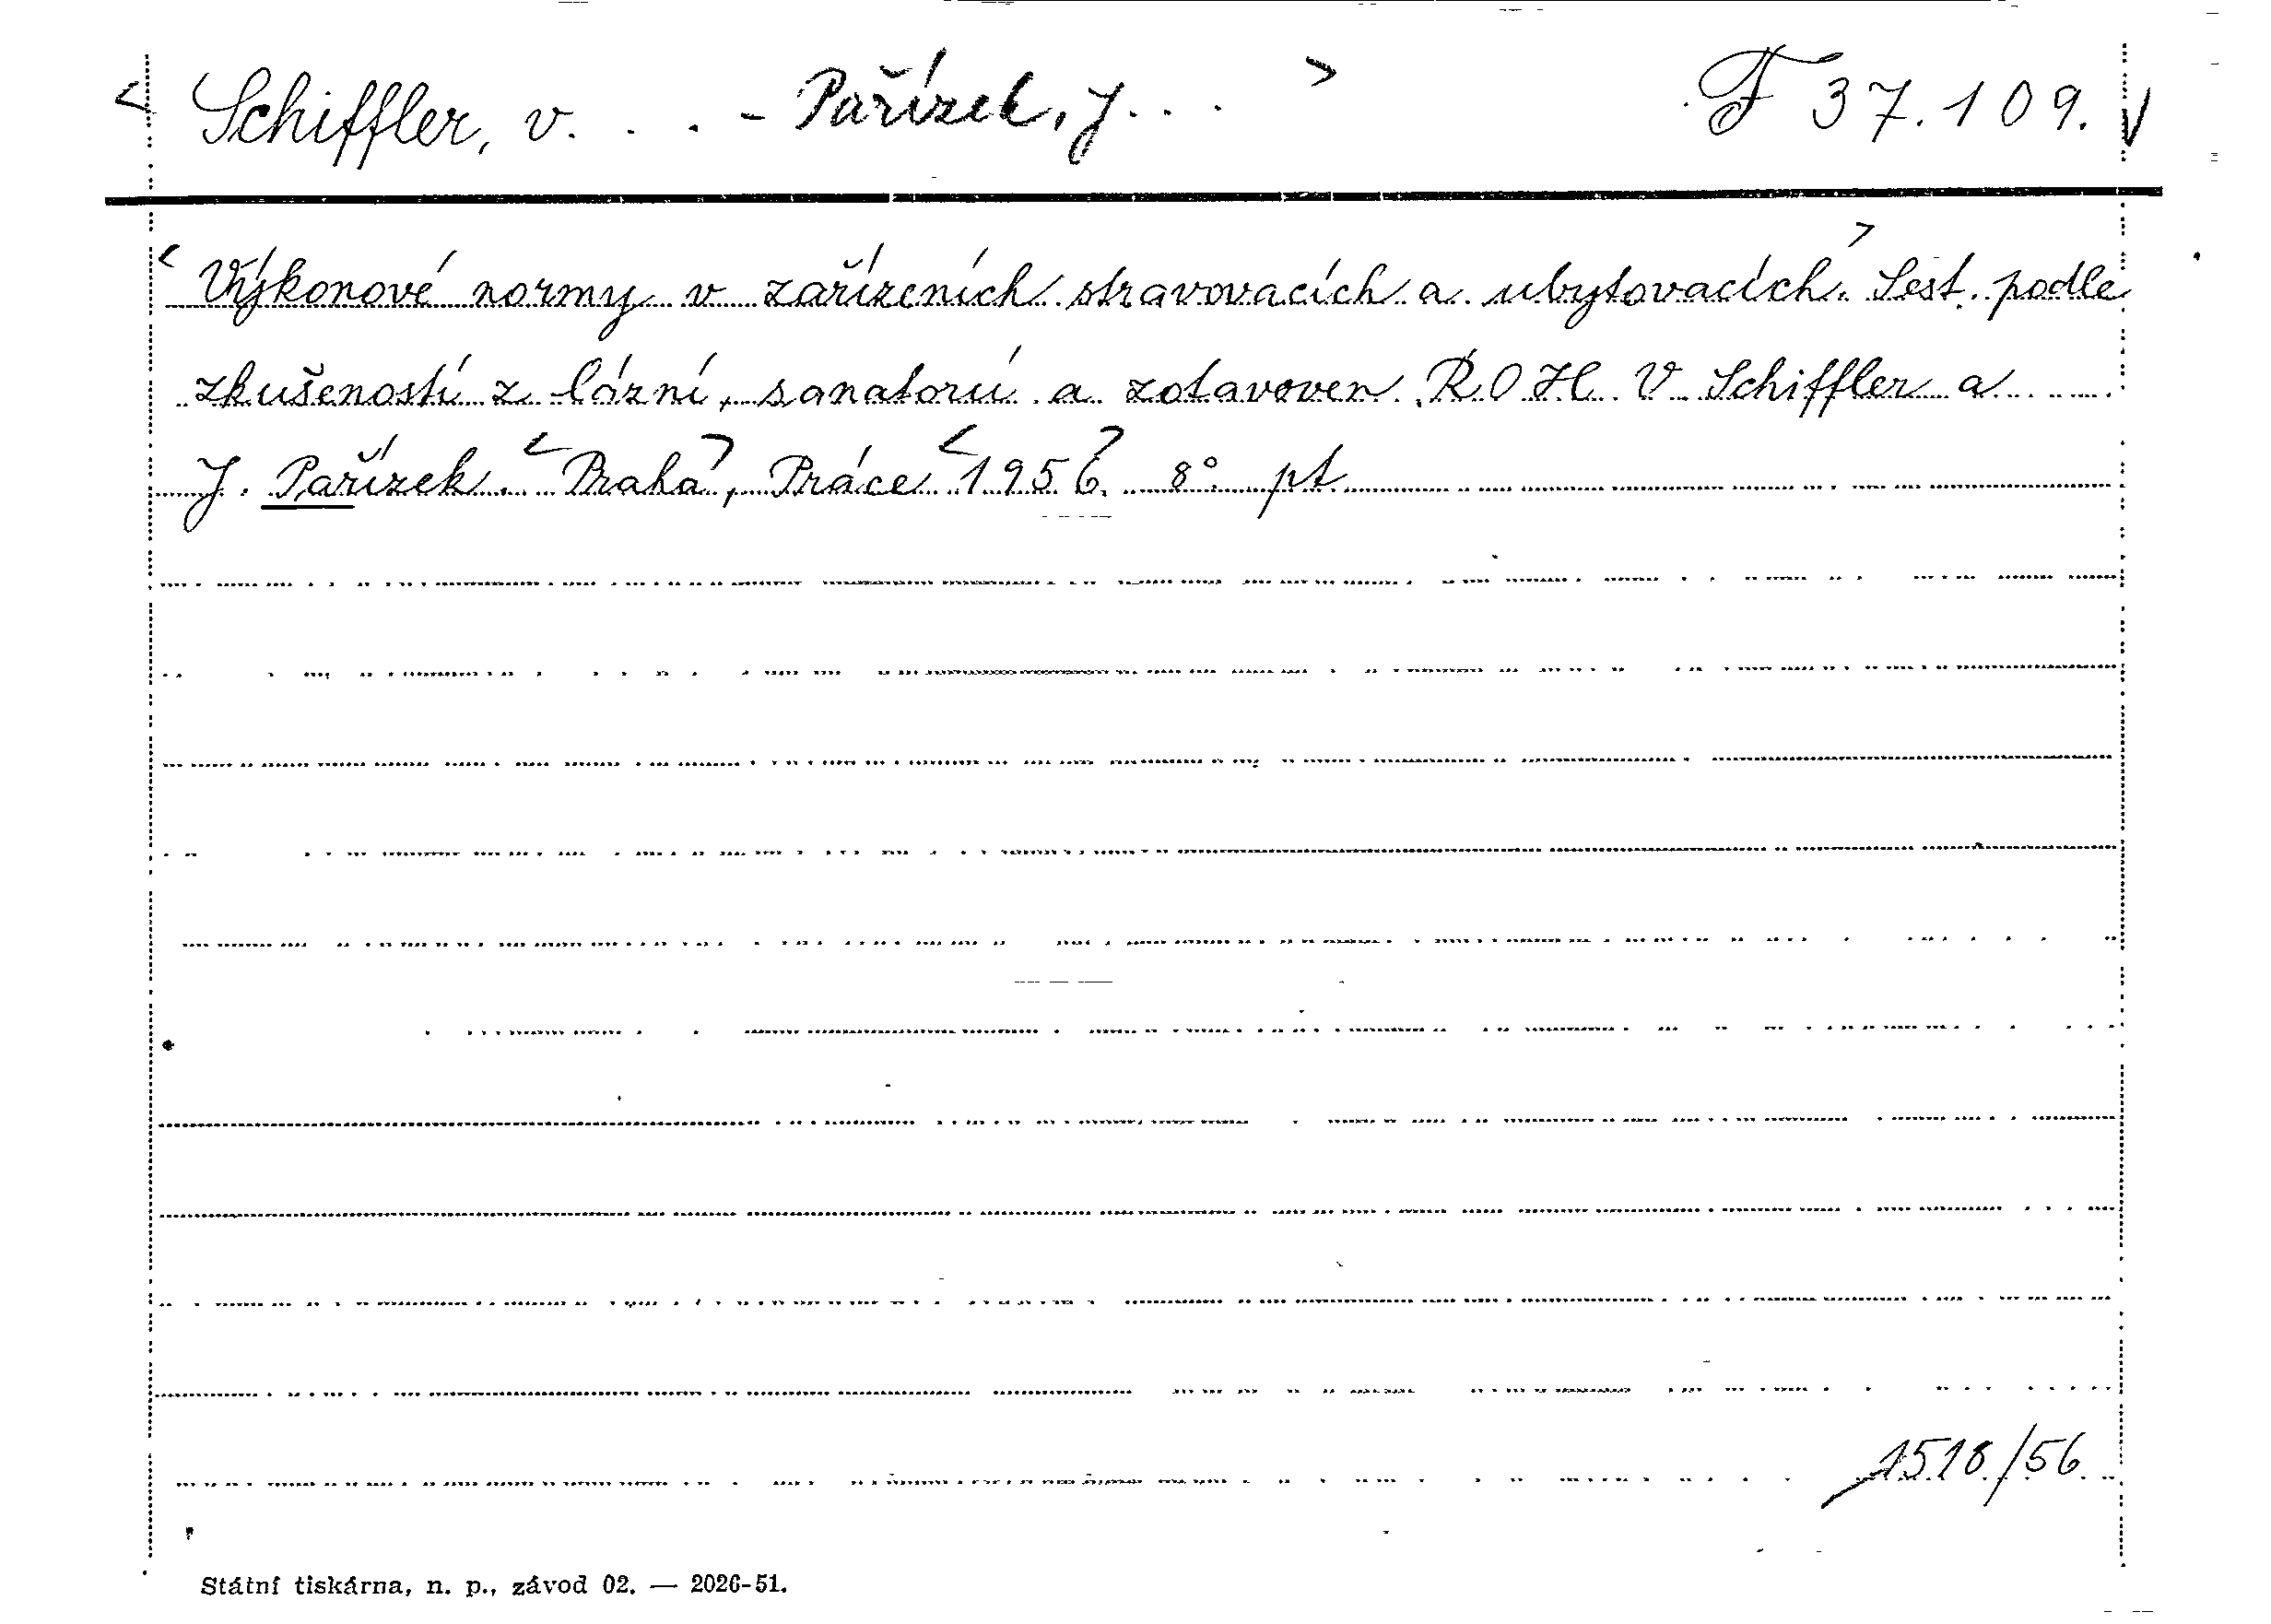 < Schiffler, V. . . - Pařízek, J. . . > F 37.109. V
< Výkonové normy v zařízeních stravovacích a ubytovacích. > Sest. podle
zkušeností z lázní, sanatorií a zotavoven ROH V. Schiffler a
J. Pařízek. < Praha >, Práce < 1956 >. 8° pt.
1518/56.
Státní tiskárna, n. p., závod 02. — 2026-51.